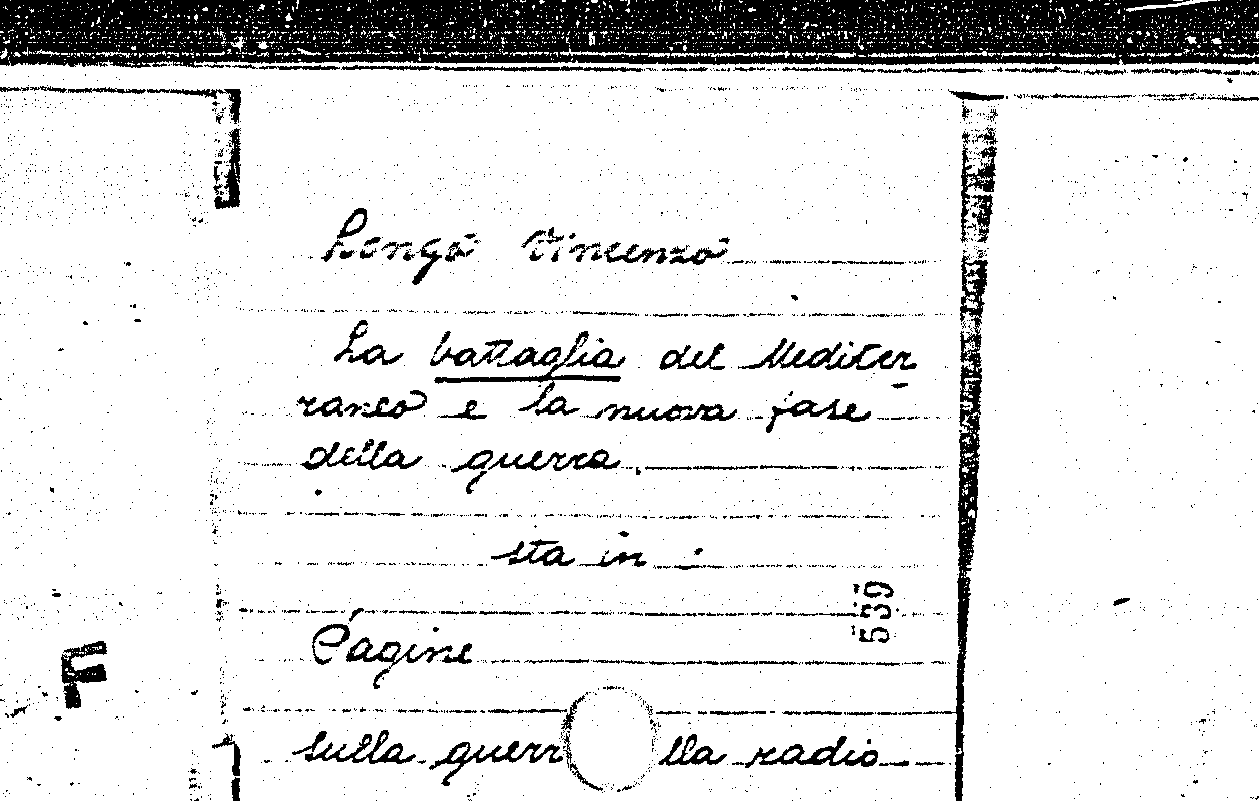 Longo Vincenzo
La battaglia del Mediter
raneo e la nuova fase
della guerra.
sta in :
539
Pagine
F
sulla guerr lla radio